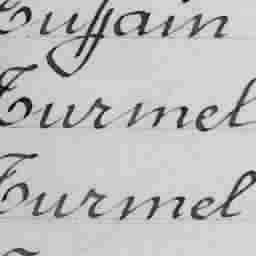 Tuffain
Turmel
Turmel